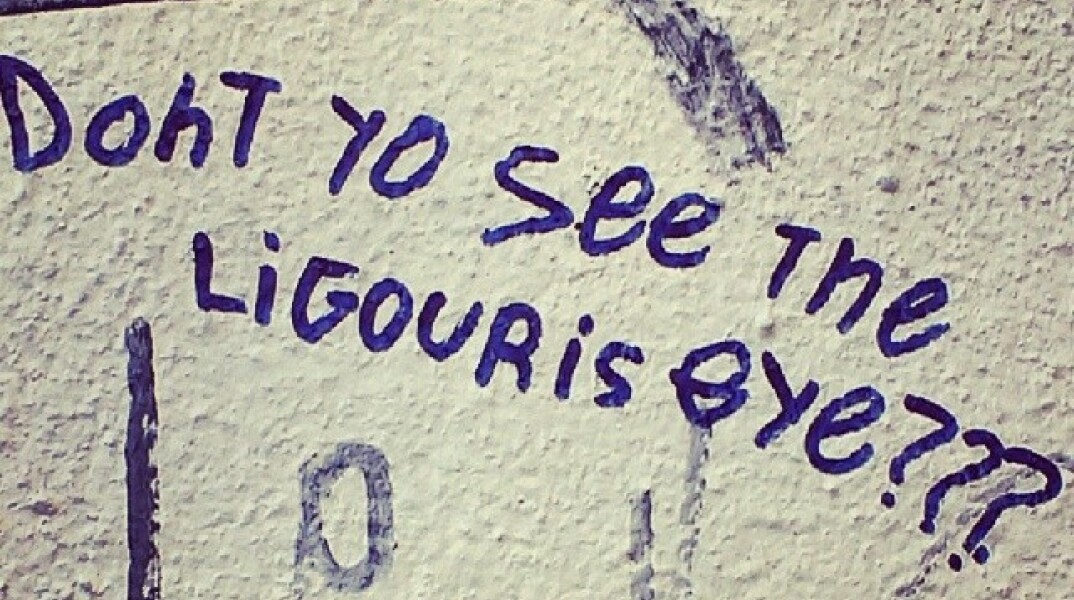 DohT YO See The
LiGOURis eye???
0